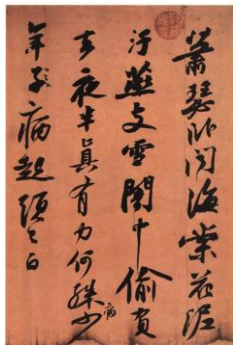 蕭瑟卧聞海棠花泥
汙燕支雪闇中偷負
去夜半真有力何殊病少
年子病起須已白